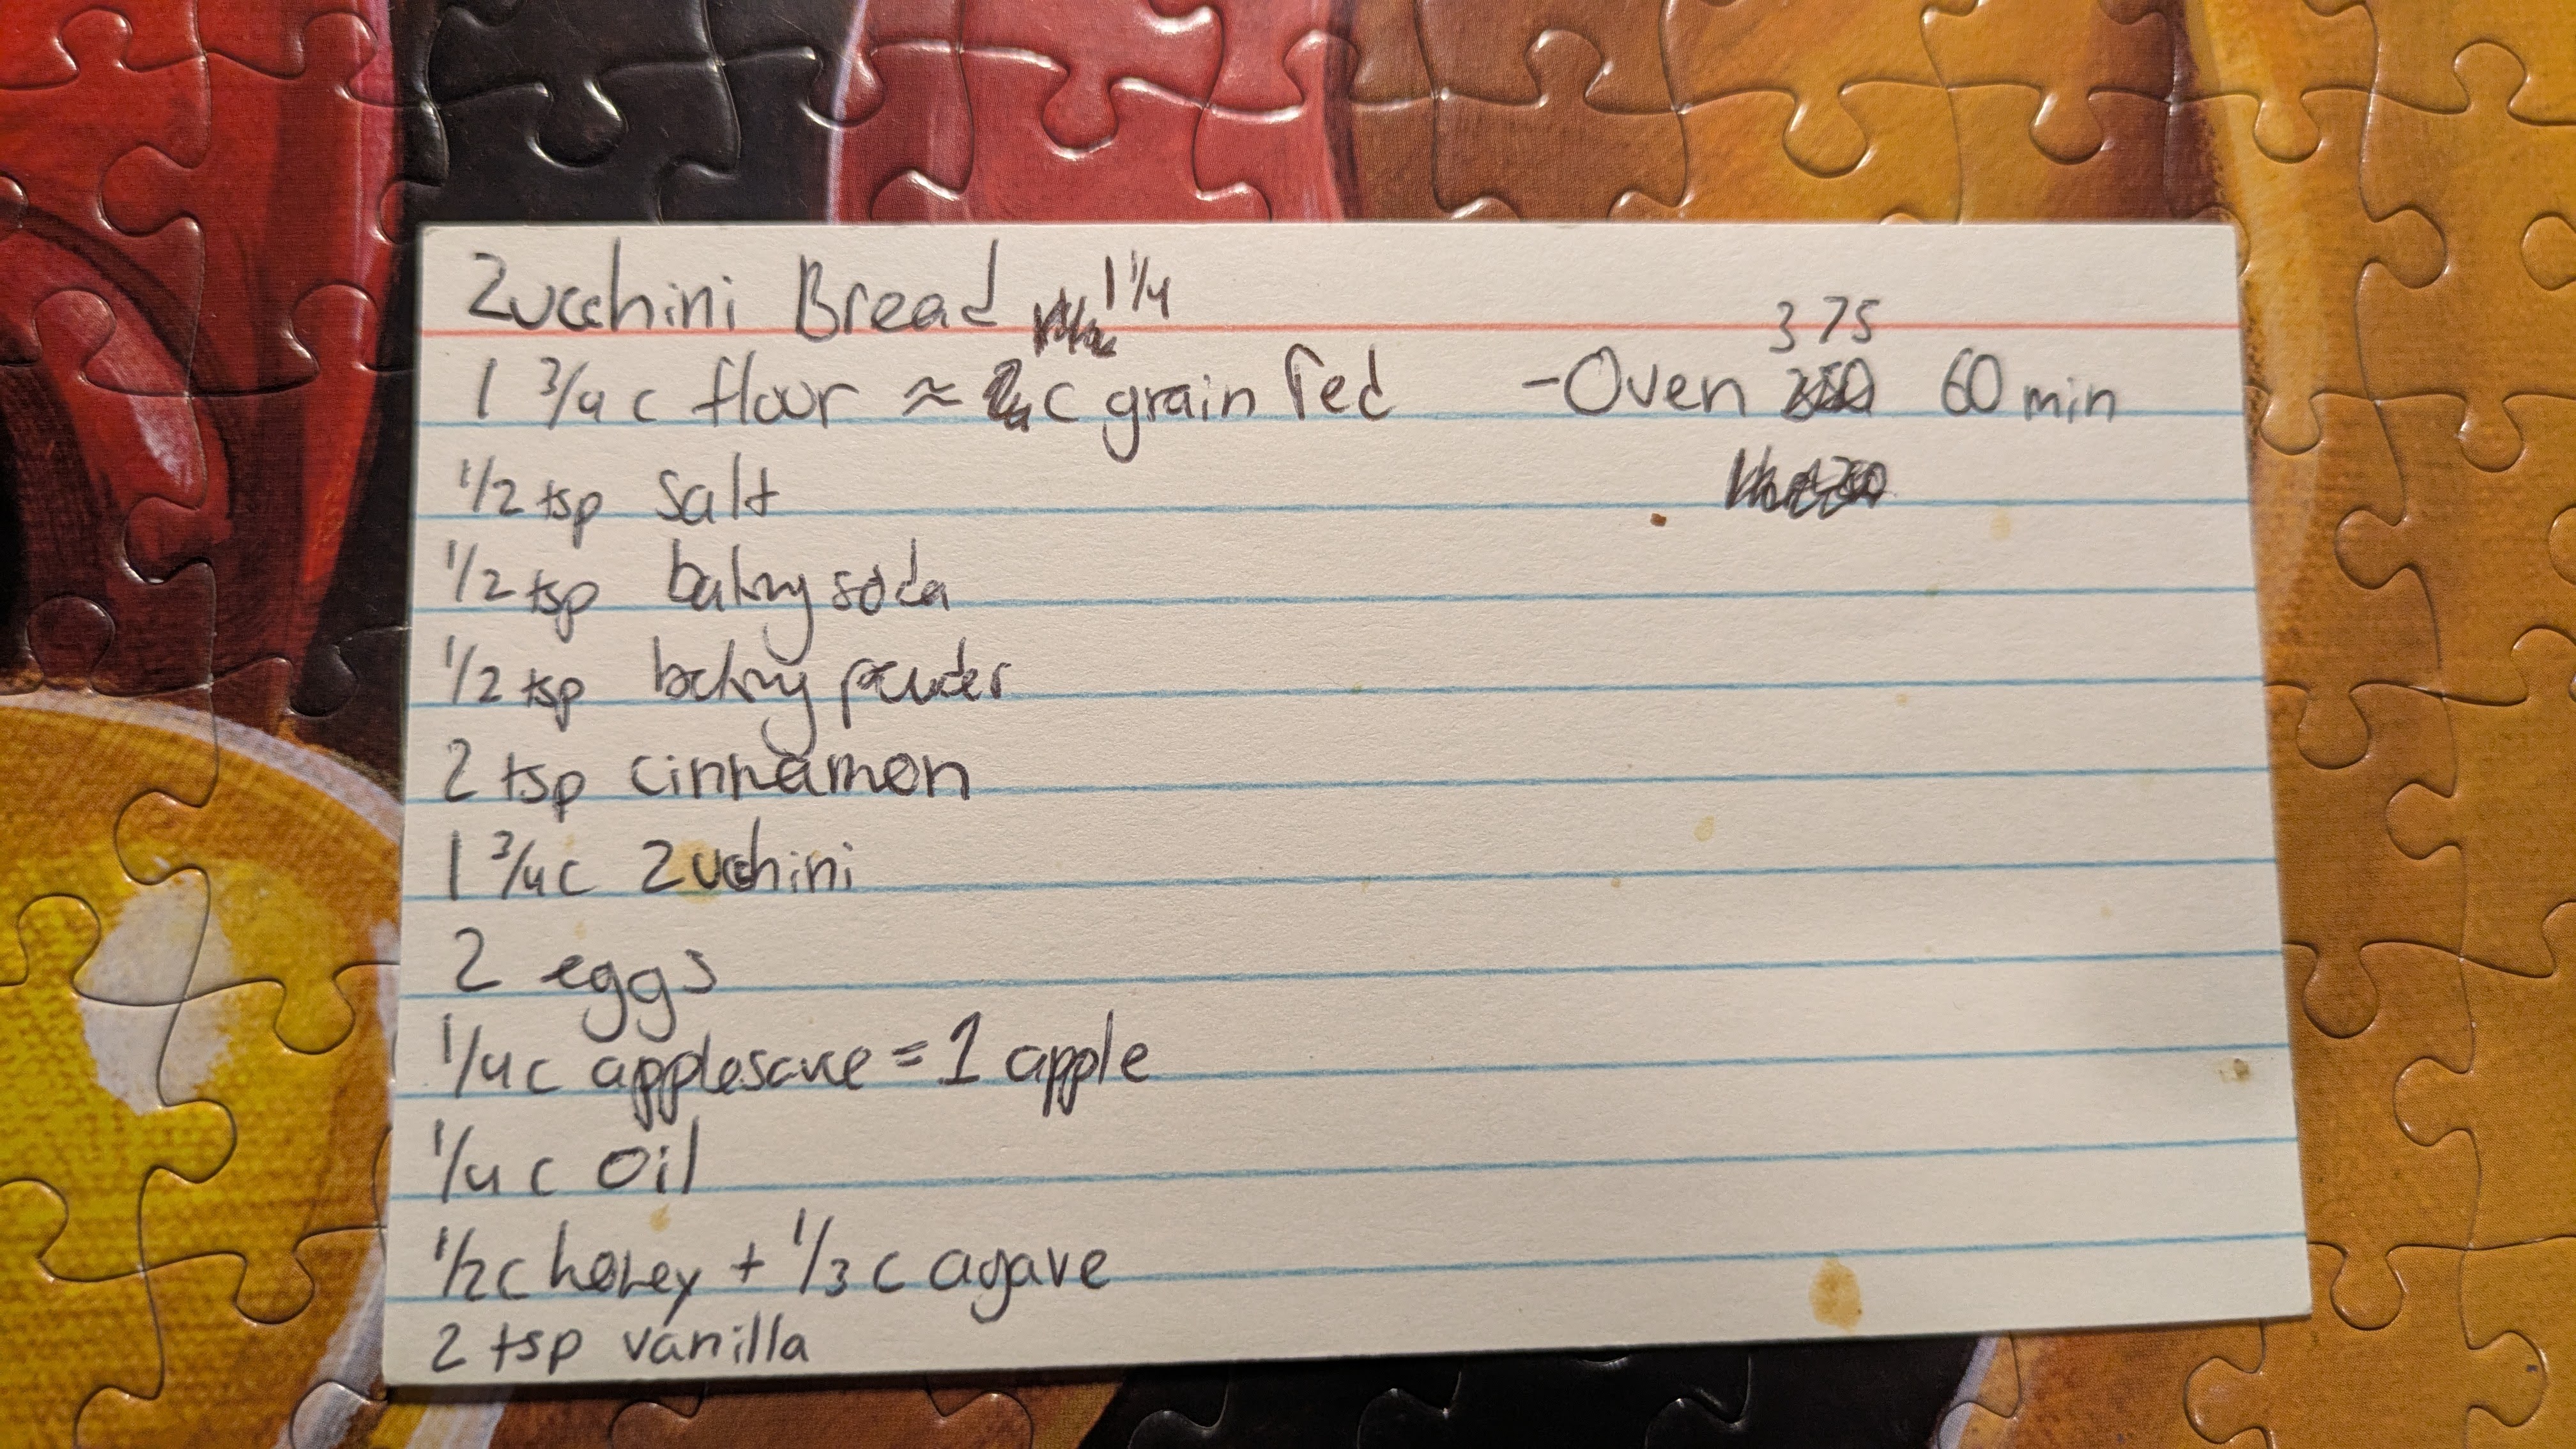 Zucchini Bread 1 1/4
375
1 3/4 c flour ≈ c grain fed - Oven 60 min
1/2 tsp salt
1/2 tsp baking soda
1/2 tsp baking powder
2 tsp cinnamon
1 3/4 c Zucchini
2 eggs
1/4 c applesauce = 1 apple
1/4 c oil
1/2 c honey + 1/3 c agave
2 tsp vanilla